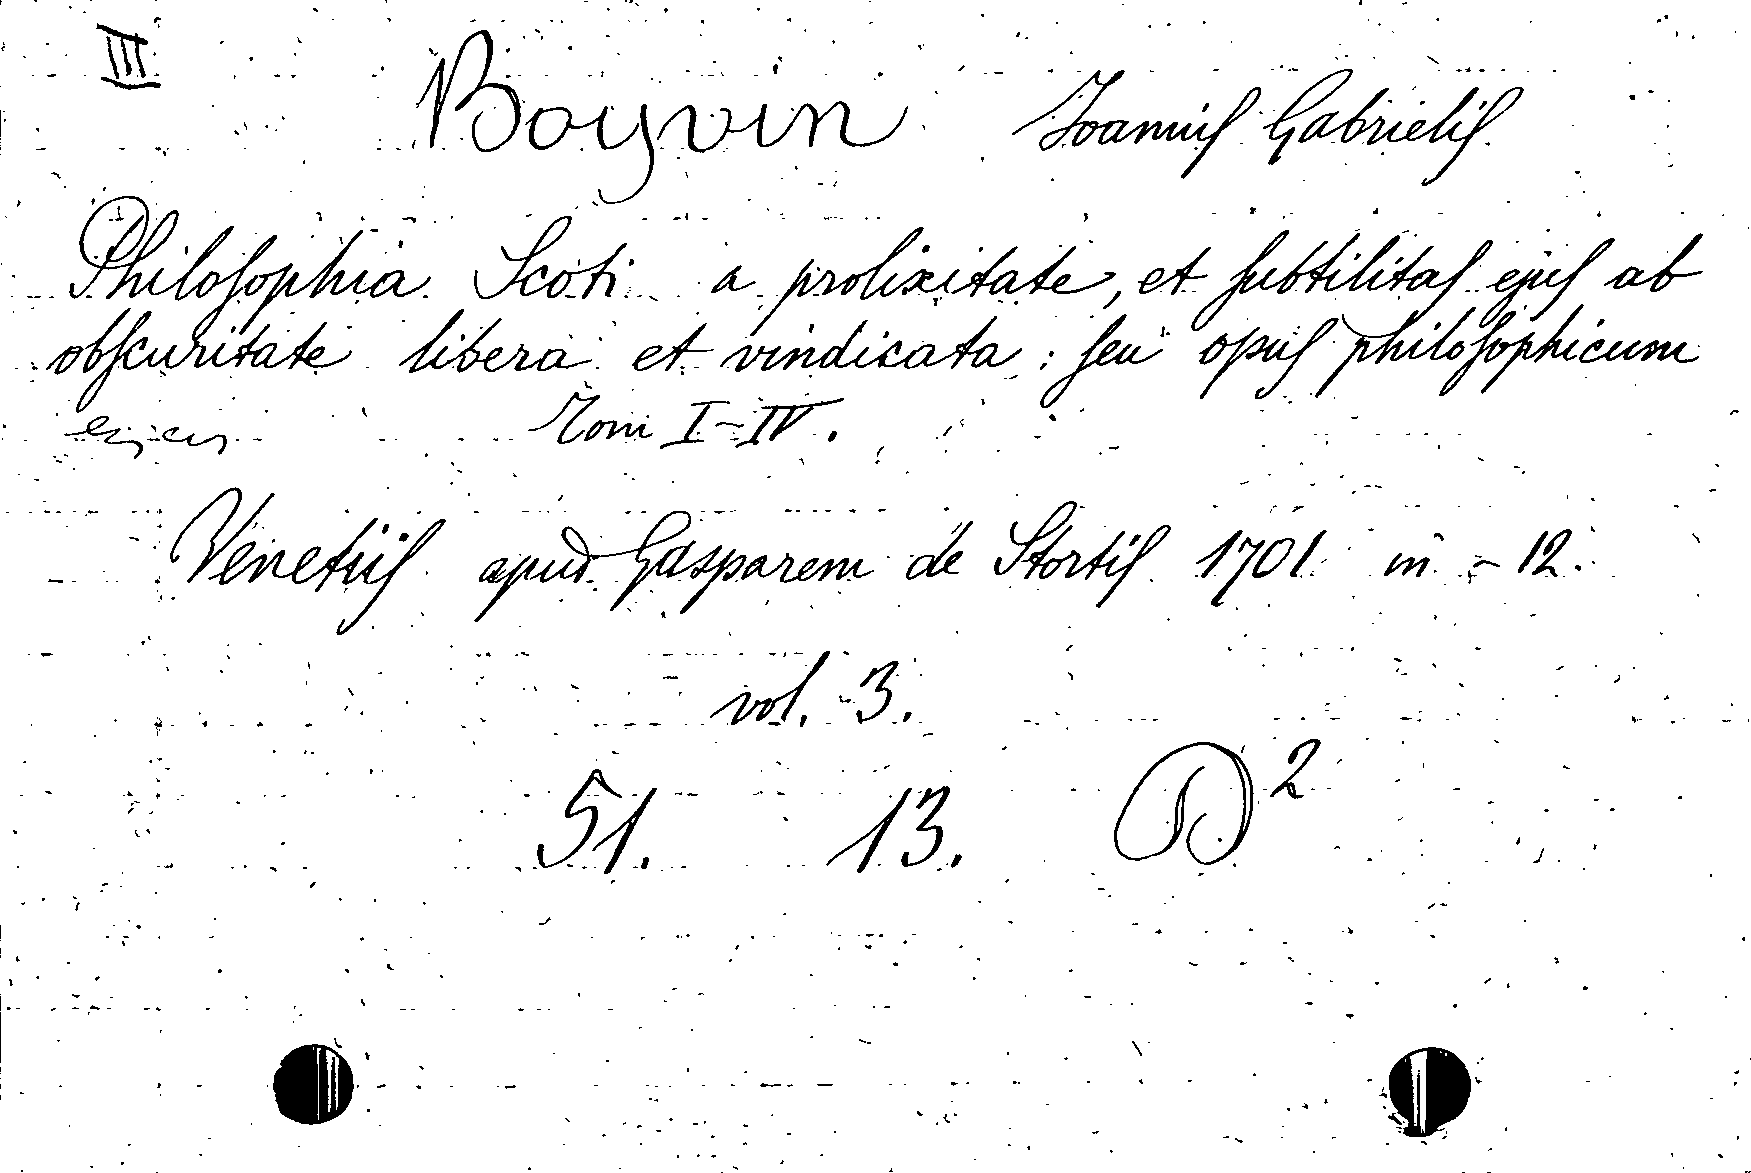 III
Boyvin Joannis Gabrielis.
Philosophia Scoti a prolixitate, et subtilitas ejus ab
obscuritate libera et vindicata : seu opus philosophicum
Tomi I-IV.
Venetiis apud Gasparem de Stortis 1701 in - 12.
vol. 3.
51. 13. D²